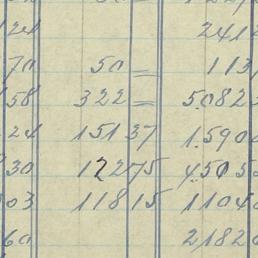 124 241
70 50 = 113
58 322 = 5.082
24 151 37 1.590
30 122 75 4.505
03 118 15 1104
60 2182